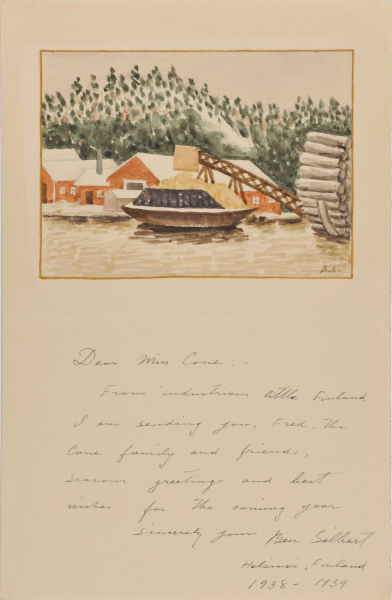 B.S.
Dear Miss Cone:-
From industrious little Finland
I am sending you, Fred, the
Cone family and friends,
seasons greetings and best
wishes for the coming year
Sincerely yours Ben Silbert
Helsinki, Finland
1938-1939